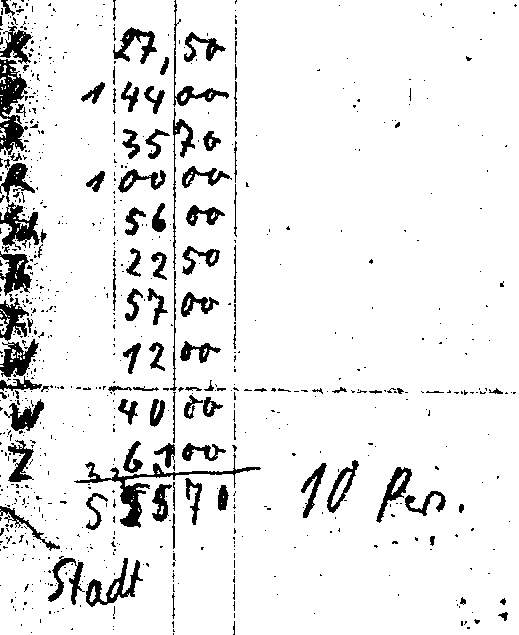 K 27,50
144 00
R 35 70
R 100 00
Sch. 56 00
Th 22 50
T 57 00
W 12 00
W 40 00
Z 61 00
555 70 10 Pers.
Stadt